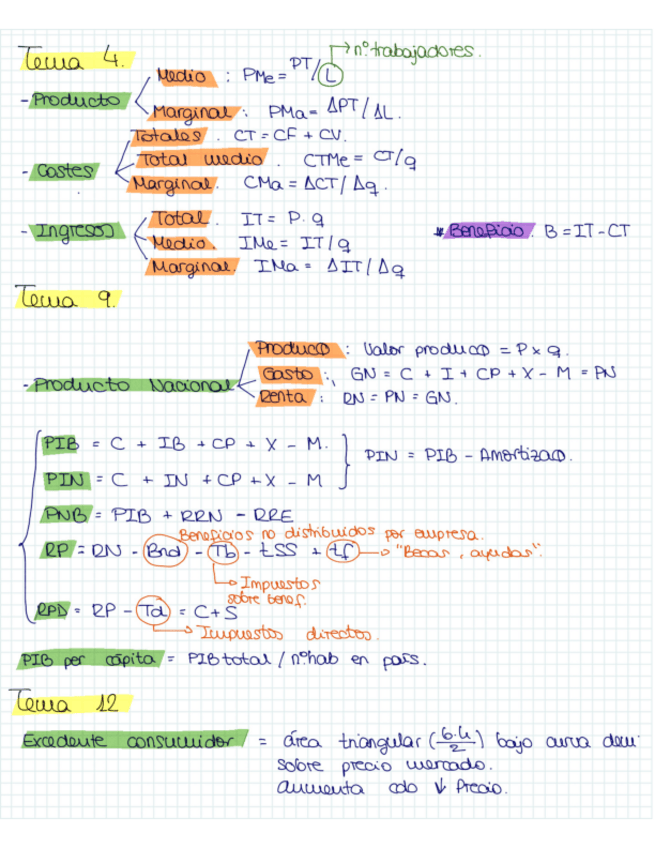 Tema 4.
→ nº trabajadores.
- Producto
Medio : PMe = PT/L
Marginal : PMa = ΔPT/ΔL.
- Costes
Totales . CT = CF + CV.
Total medio . CTMe = CT/q
Marginal. CMa = ΔCT/Δq.
- Ingresos
Total. IT = P. q
Medio. IMe = IT/q
Marginal. IMa = ΔIT/Δq
* Beneficio. B = IT - CT
Tema 9.
- Producto Nacional
Producto : Valor producto = P x q.
Gasto : GN = C + I + CP + X - M = PN
Renta : RN = PN = GN.
PIB = C + IB + CP + X - M.
PIN = C + IN + CP + X - M
PIN = PIB - Amortizac.
PNB = PIB + RRN - RRE
Beneficios no distribuidos por empresa.
RP = RN - Bnd - Tb - tSS + tf → "Becas, ayudas".
→ Impuestos
sobre benef.
RPD = RP - Td = C+S
→ Impuestos directos.
PIB per cápita = PIB total / nºhab en país.
Tema 12
Excedente consumidor = área triangular (b·h/2) bajo curva dem
sobre precio mercado.
aumenta cdo ↓ Precio.